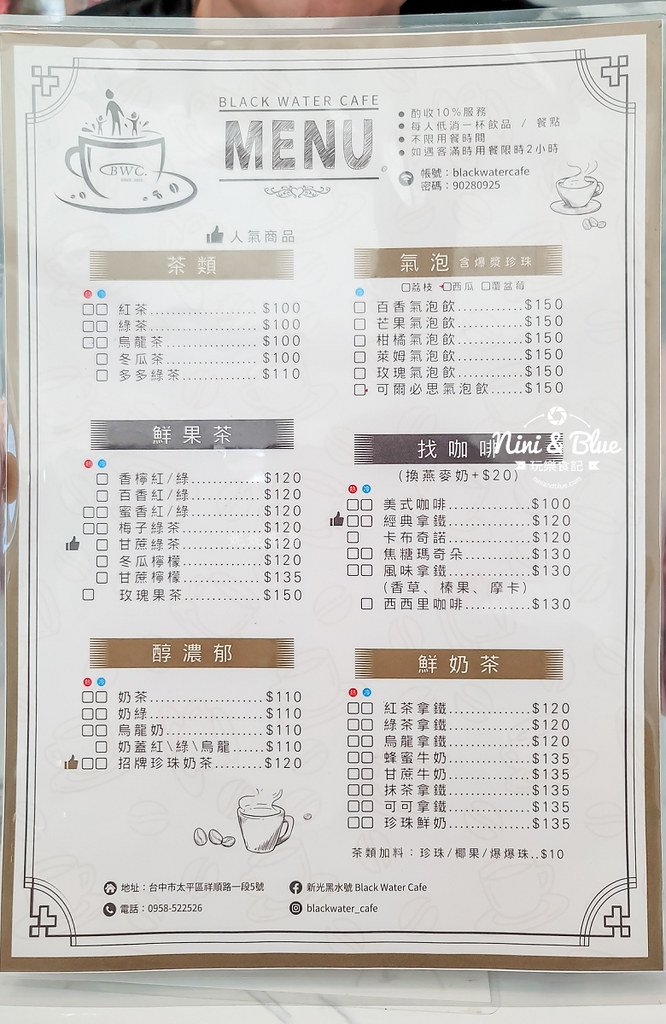 BLACK WATER CAFE
MENU
BWC.
酌收10%服務
每人低消一杯飲品 / 餐點
不限用餐時間
如遇客滿時用餐限時2小時
帳號：blackwatercafe
密碼：90280925
人氣商品
茶類
熱 冷
紅茶 $100
綠茶 $100
烏龍茶 $100
冬瓜茶 $100
多多綠茶 $110
鮮果茶
熱 冷
香檸紅/綠 $120
百香紅/綠 $120
蜜香紅/綠 $120
梅子綠茶 $120
甘蔗綠茶 $120
冬瓜檸檬 $120
甘蔗檸檬 $135
玫瑰果茶 $150
醇濃郁
熱 冷
奶茶 $110
奶綠 $110
烏龍奶 $110
奶蓋紅\綠\烏龍 $110
招牌珍珠奶茶 $120
氣泡 含爆漿珍珠
□荔枝 □西瓜 □覆盆莓
冷
百香氣泡飲 $150
芒果氣泡飲 $150
柑橘氣泡飲 $150
萊姆氣泡飲 $150
玫瑰氣泡飲 $150
可爾必思氣泡飲 $150
找咖啡
Nini & Blue
玩樂食記
(換燕麥奶+$20)
熱 冷
美式咖啡 $100
經典拿鐵 $120
卡布奇諾 $120
焦糖瑪奇朵 $130
風味拿鐵 $130
(香草、榛果、摩卡)
西西里咖啡 $130
鮮奶茶
熱 冷
紅茶拿鐵 $120
綠茶拿鐵 $120
烏龍拿鐵 $120
蜂蜜牛奶 $135
甘蔗牛奶 $135
抹茶拿鐵 $135
可可拿鐵 $135
珍珠鮮奶 $135
茶類加料：珍珠/椰果/爆爆珠..$10
地址：台中市太平區祥順路一段5號
新光黑水號 Black Water Cafe
電話：0958-522526
blackwater_cafe